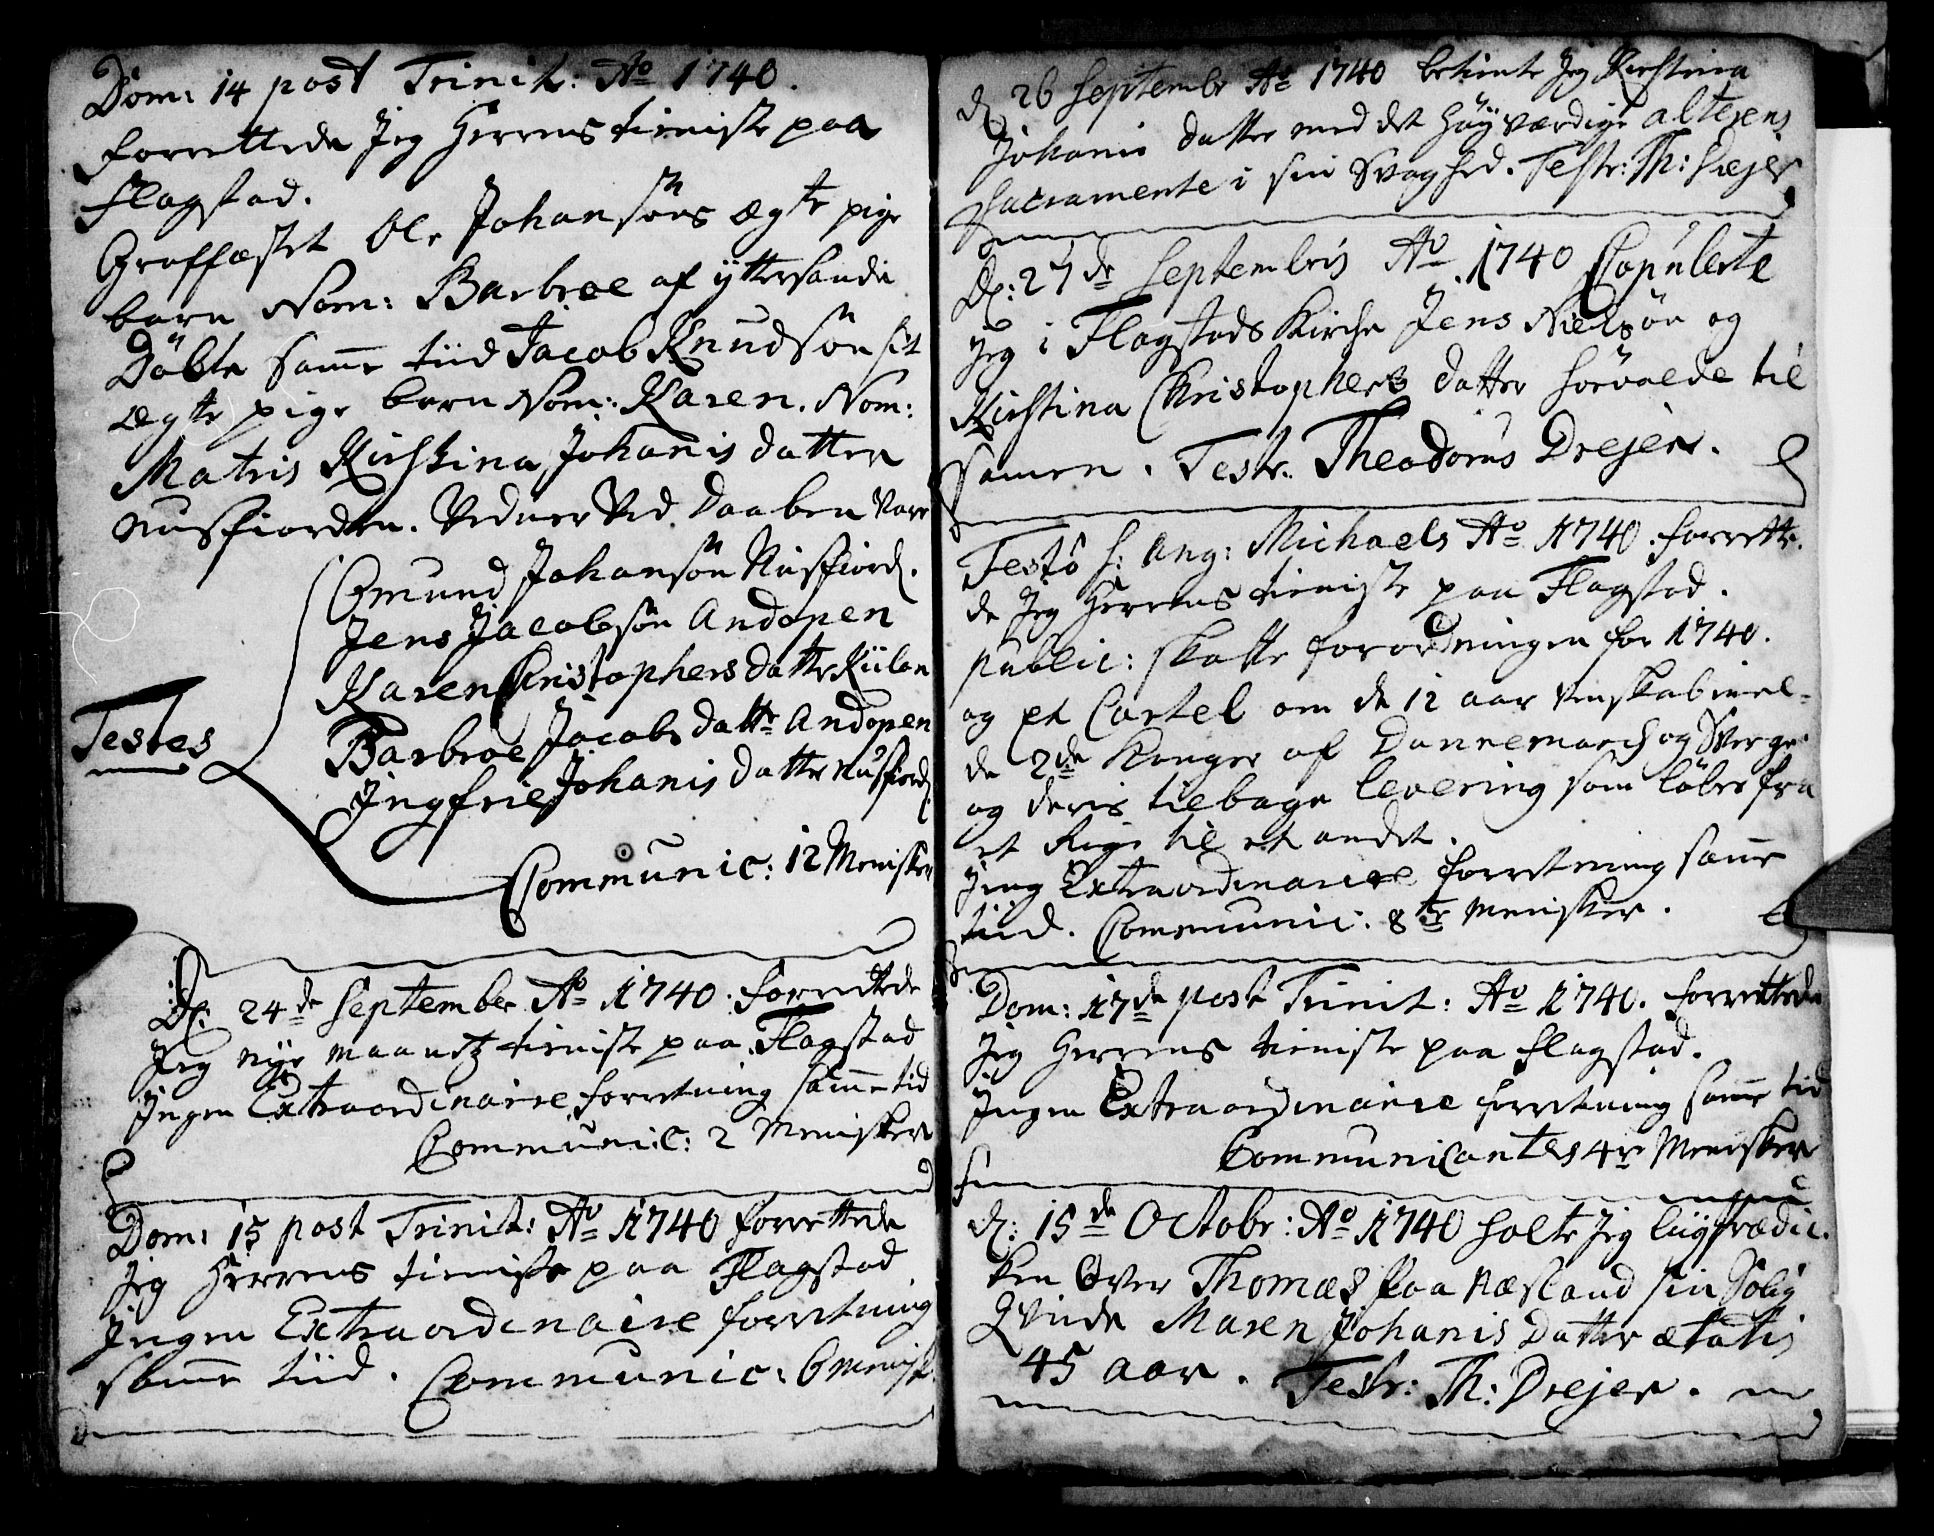 Dom: 14 post Trinit: Ao 1740.
forrettede Jeg Herrens tieniste paa
Flagstad.
Graffæstet Ole Johansöns ægte pige
barn Nom: Barbroe af yttersandn
Döbte samme tiid Jacob Knudsön sit
ægte pige barn Nom: Karen. Nom:
Matris Kirstina Johanis datter
nusfiorden. Vidner Ved Daaben vare
Testes
Omund Johansön Nusfiord.
Jens Jacobsön Andopen
Karen Christophers datter Kiilan
Barbroe Jacobs datter Andopen
Ingfrie Johanis datter nusfiord.
Communic: 12 Menisker
D: 24de September Ao 1740. forrettede
Jeg nyje maanetz tieniste paa Flagstad
Ingen Extraordinaire forretning samme tid
Communic: 2 Menisker
Dom: 15 post Trinit: Ao 1740 forrettede
Jeg Herrens tieniste paa Flagstad.
Ingen Extraordinaire forretning
samme tiid. Communic: 6 Menisk.
d 26 Septembr Ao 1740 betiente Jeg Kirstina
Johanis datter med det höyværdige altesens
Sacramente i sin Svaghed. Testr: Th: Drejer
D: 27de Septembris Ao 1740 Copulerte
Jeg i Flagstads Kirche Jens Nielsön og
Kirstina Christophers datter sörvaade til
samen. Testr. Theodorus Drejer.
Festo S: Ang: Michaels Ao 1740. forrette-
de Jeg Herrens tieniste paa Flagstad.
public: skatte forordningen for 1740.
og et Cartel om de 12 aar imel-
de 2de Konger af Dannemarch og Sverge
og deris tilbage levering som löber fra
et Rige til et andet.
Jng Extraordinaire forretning samme
tiid. Communic: 8te Menisker.
Dom: 17de post Trinit: Ao 1740. forrettede
Jeg Herrens tieniste paa Flagstad.
Ingen Extraordinaire forretning samme tid
Communicantes 4re Menisker
d: 15de Octobr: Ao 1740 holte Jeg liigprædic-
ken Over Thomæs paa Næsland sin Salig
Qvinde Maren Johanis Datter ætatis
45 aar. Testr: Th: Drejer.